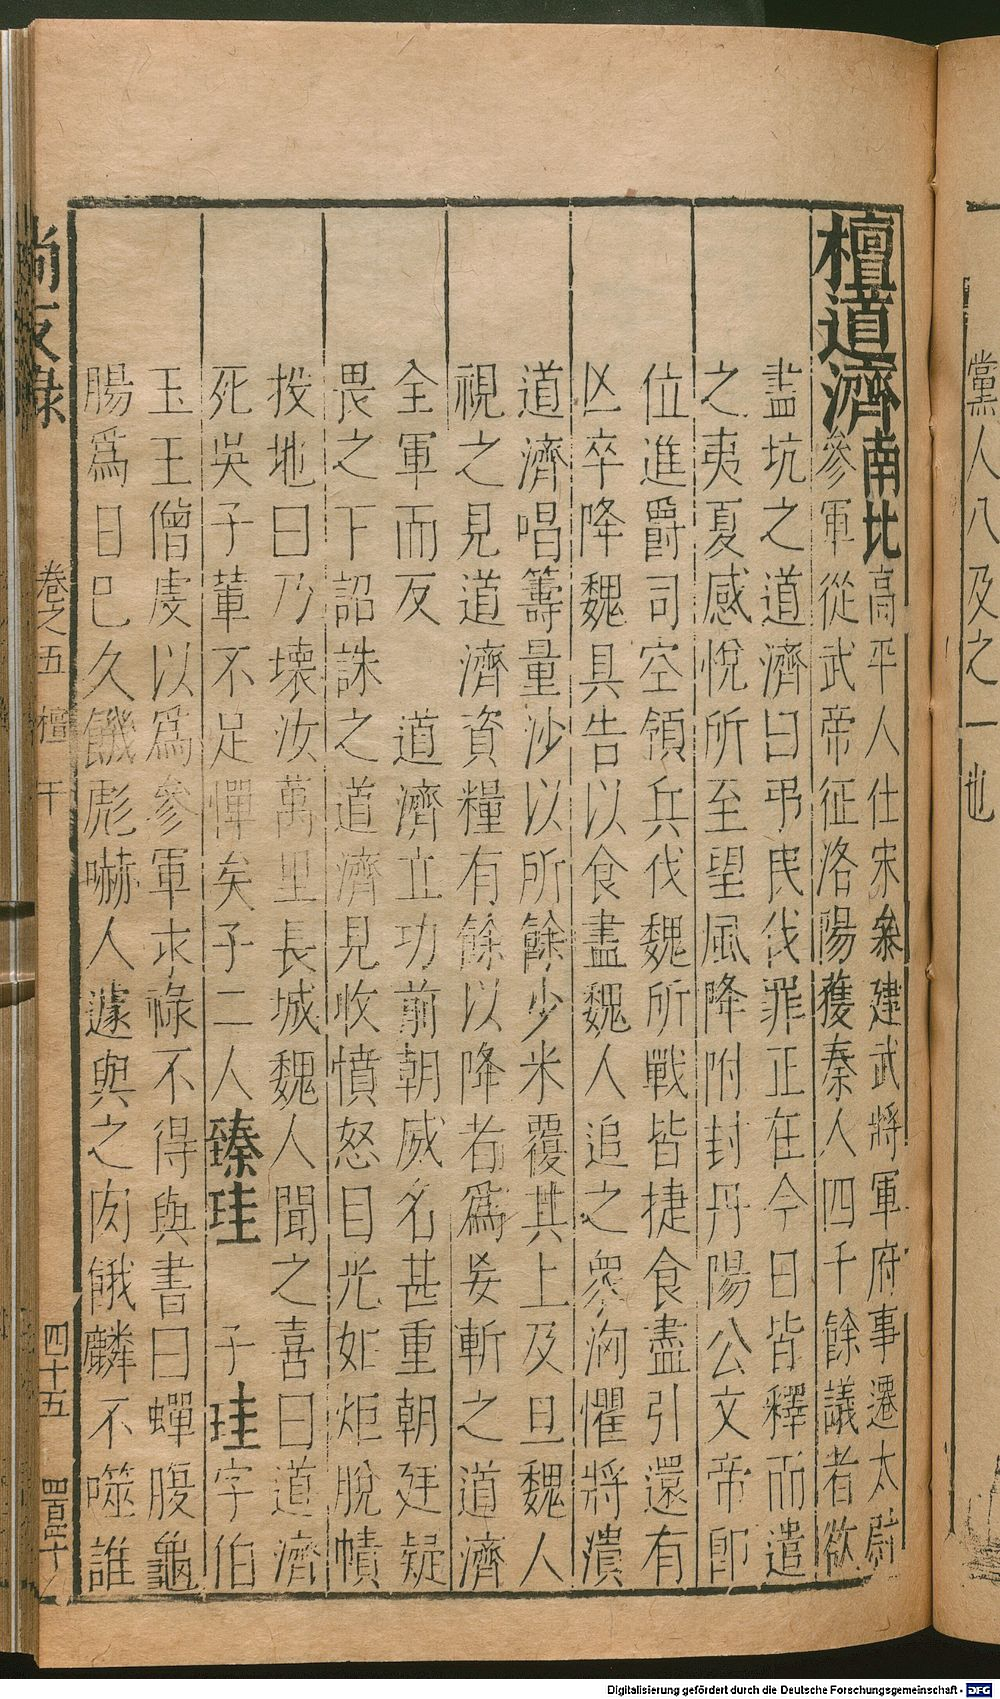 黨人八及之一也
檀道濟南北高平人仕宋叅建武將軍府事遷太尉
參軍從武帝征洛陽獲秦人四千餘議者欲
盡坑之道濟曰弔民伐罪正在今日皆釋而遣
之夷夏感悅所至望風降附封丹陽公文帝即
位進爵司空領兵伐魏所戰皆捷食盡引還有
凶卒降魏具告以食盡魏人追之眾洶懼將潰
道濟唱籌量沙以所餘少米覆其上及旦魏人
視之見道濟資糧有餘以降者為妄斬之道濟
全軍而反 道濟立功前朝威名甚重朝廷疑
畏之下詔誅之道濟見收憤怒目光如炬脫幘
投地曰乃壞汝萬里長城魏人聞之喜曰道濟
死吳子輩不足憚矣子二人臻珪 子珪字伯
玉王僧虔以爲參軍求祿不得與書曰蟬腹龜
腸爲日已久饑彪嚇人遽與之肉餓麟不噬誰
尚友錄 卷之五 檀 干 四十五
Digitalisierung gefördert durch die Deutsche Forschungsgemeinschaft - DFG